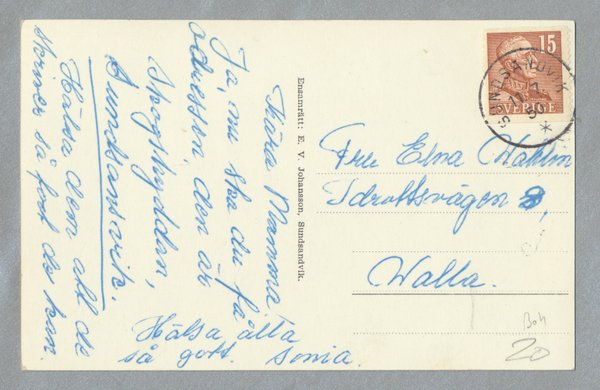 Kära Mamma!
Ja, nu ska du få
adressen, den är
Skogshyddan,
Sundsandvik.
Hälsa dem all de
skriver så fort de kan.
Hälsa alla
så gott. Sonia.
Ensamrätt: E. V. Johansson, Sundsandvik.
15
SVERIGE
SUNDSANDVIK
Fru Elna
Idrottsvägen 8,
Walla.
Boh
20